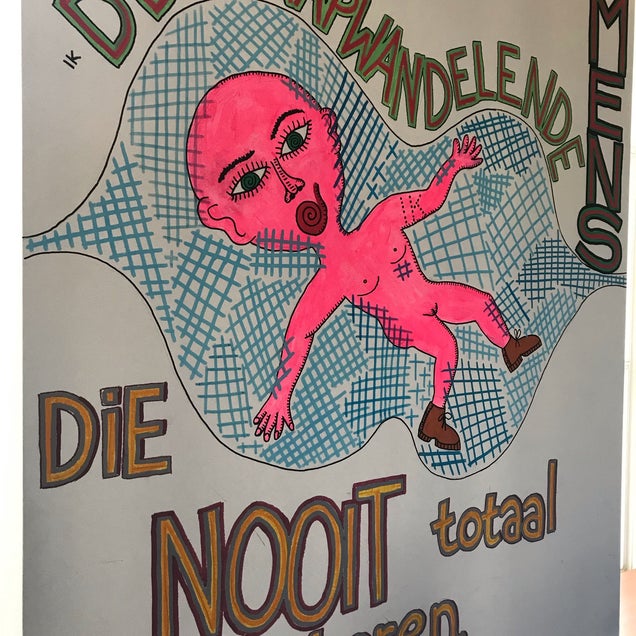 IK
DE APWANDELENDE
MENS
DiE
NOOiT totaal